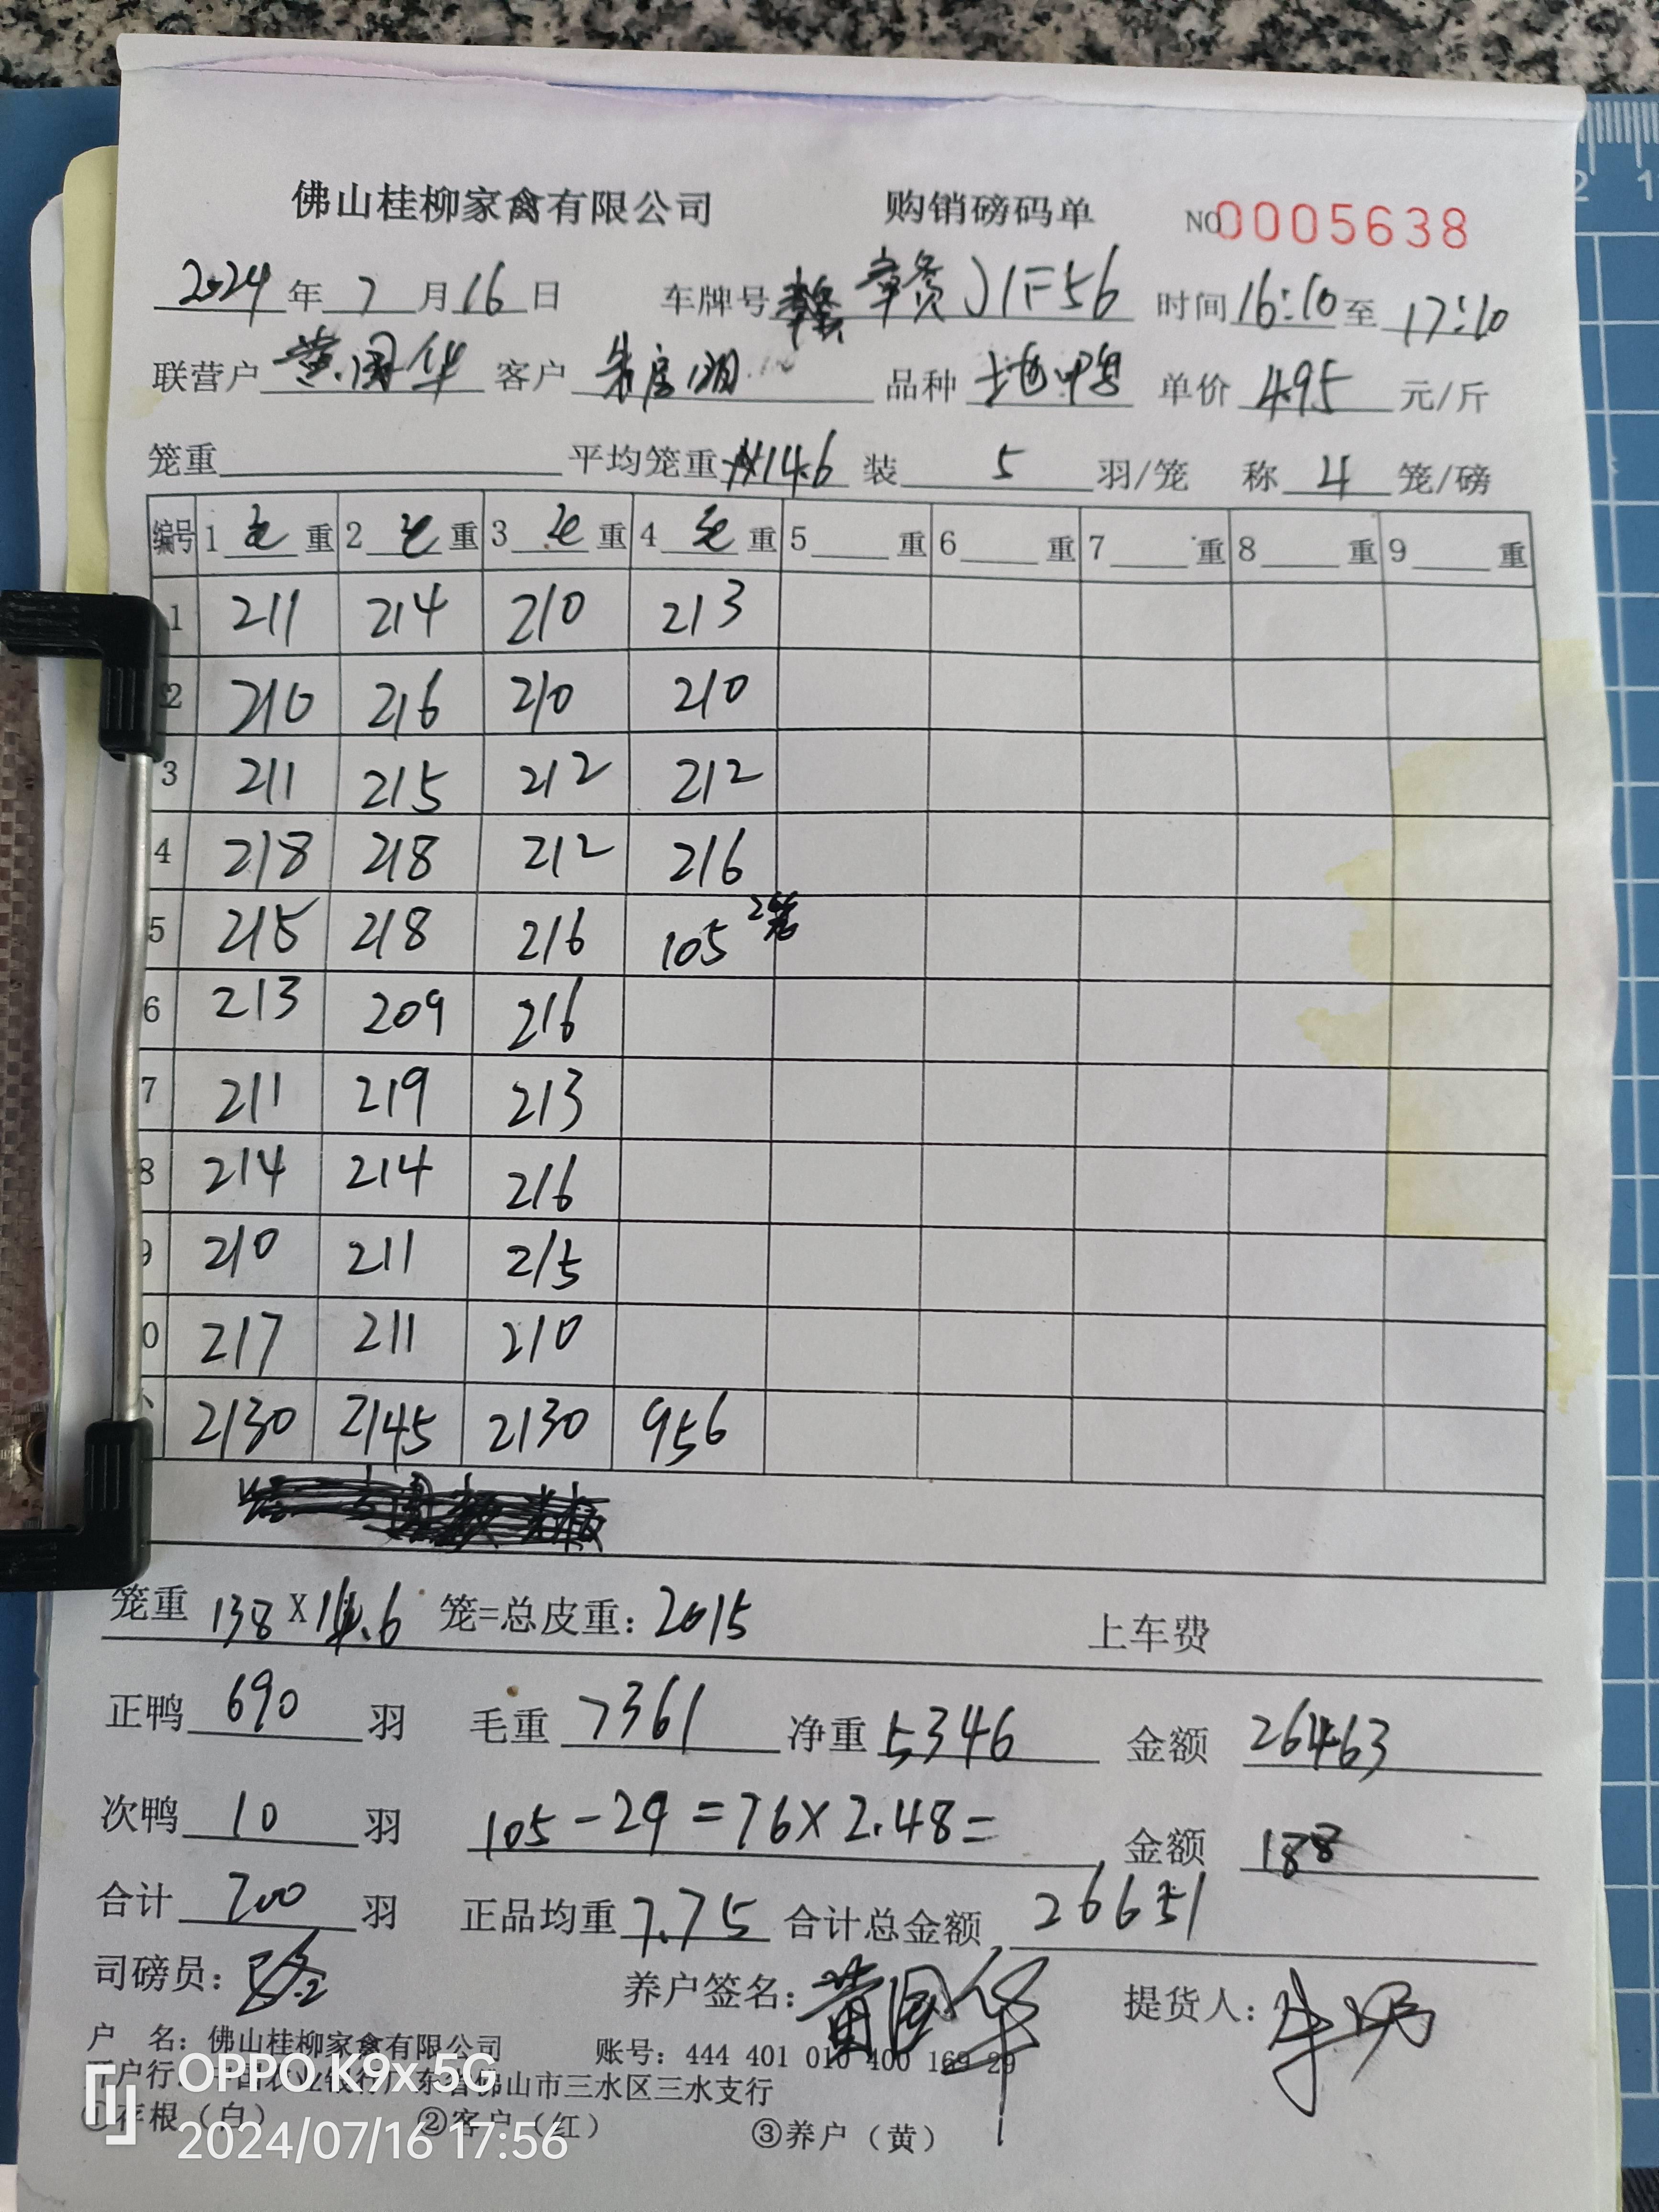 佛山桂柳家禽有限公司 购销磅码单 NO 0005638
2024 年 7 月 16 日 车牌号 赣J1F56 时间 16:10 至 17:10
联营户 黄国华 客户 品种 土池鸭 单价 4.95 元/斤
笼重 平均笼重 14.6 装 5 羽/笼 称 4 笼/磅
编号 1 毛 重 2 毛 重 3 毛 重 4 毛 重 5 重 6 重 7 重 8 重 9 重
1 211 214 210 213
2 210 216 210 210
3 211 215 212 212
4 218 218 212 216
5 215 218 216 105 2笼
6 213 209 216
7 211 219 213
8 214 214 216
9 210 211 215
0 217 211 210
2130 2145 2130 956
笼重 138 X 14.6 笼=总皮重: 2015 上车费
正鸭 690 羽 毛重 7361 净重 5346 金额 26463
次鸭 10 羽 105-29=76×2.48= 金额 188
合计 700 羽 正品均重 7.75 合计总金额 26651
司磅员: 养户签名: 黄国华 提货人:
户 名: 佛山桂柳家禽有限公司 账号: 444 401 010 400 169 29
开户行: 中国农业银行广东省佛山市三水区三水支行
①存根(白) ②客户(红) ③养户(黄)
OPPO K9x 5G
2024/07/16 17:56